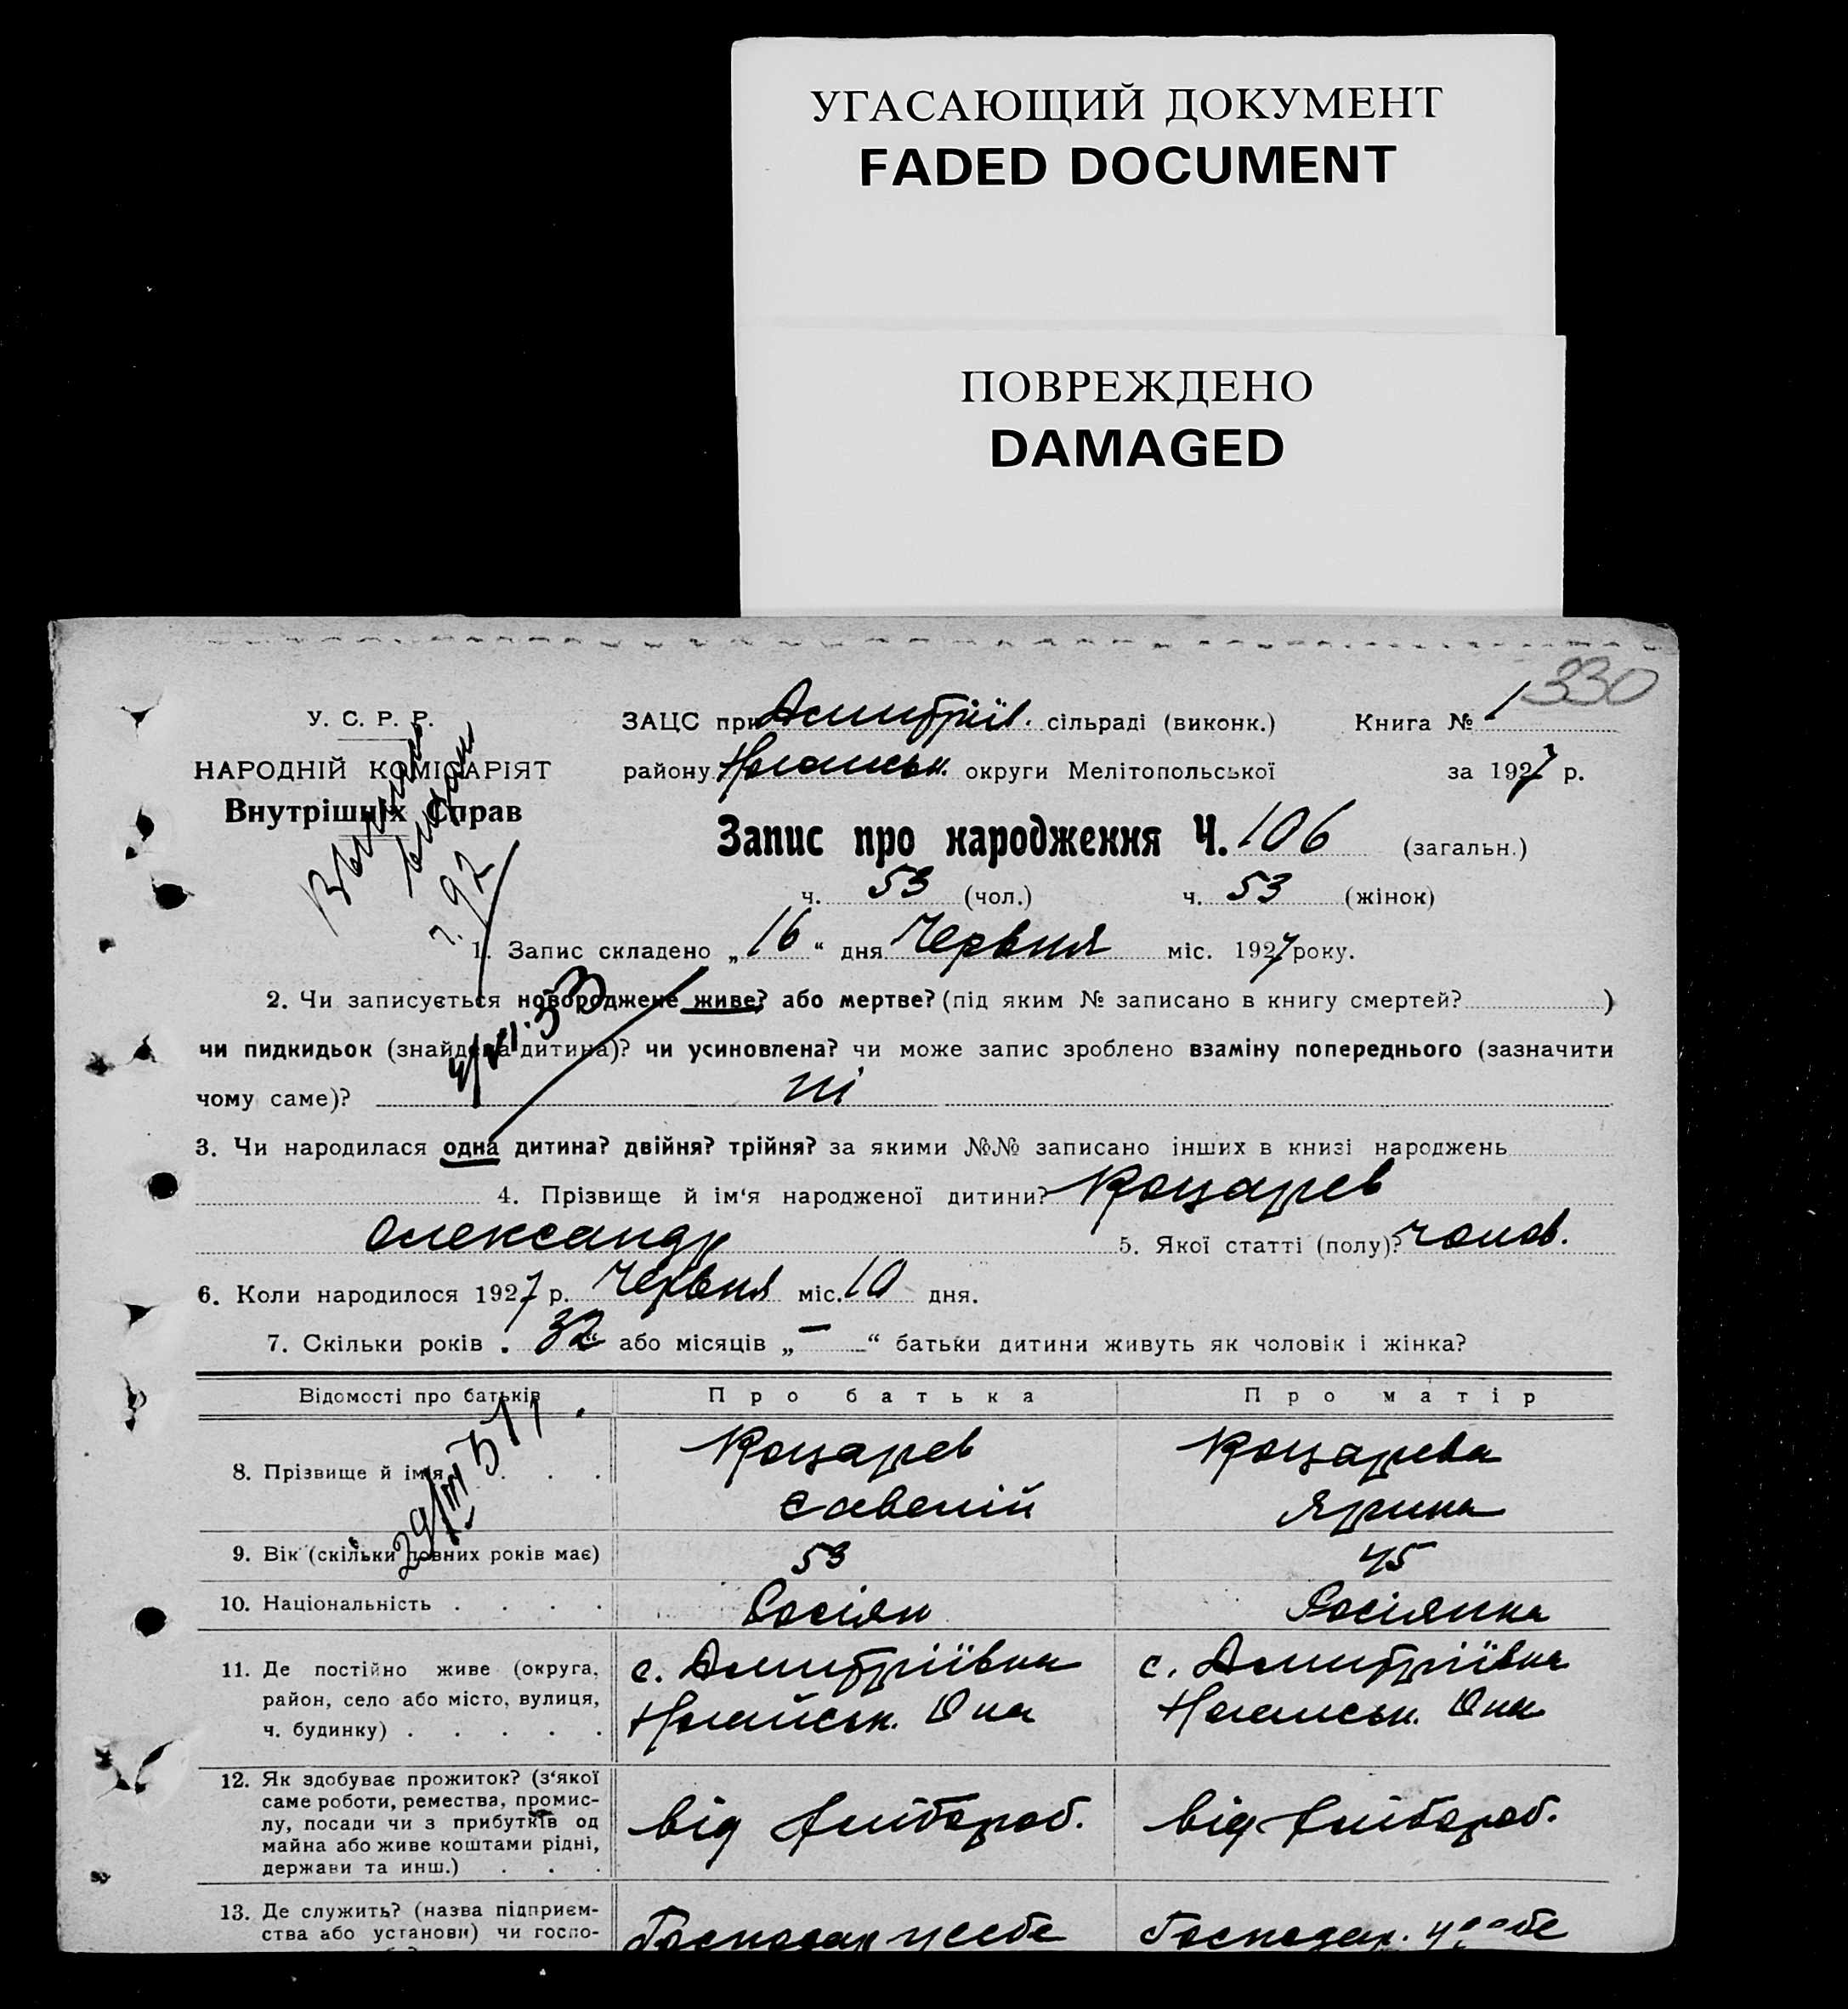 УГАСАЮЩИЙ ДОКУМЕНТ
FADED DOCUMENT
ПОВРЕЖДЕНО
DAMAGED
330
У. С. Р. Р.
НАРОДНІЙ КОМІСАРІЯТ
Внутрішніх Справ
ЗАЦС при Дмитріїв. сільраді (виконк.) Книга № 1
району Ногайськ. округи Мелітопольської за 1927 р.
Запис про народження Ч. 106 (загальн.)
ч. 53 (чол.) ч. 53 (жінок)
1. Запис складено „16“ дня Червня міс. 1927 року.
2. Чи записується новороджене живе? або мертве? (під яким № записано в книгу смертей? )
чи пидкидьок (знайдена дитина)? чи усиновлена? чи може запис зроблено взаміну попереднього (зазначити
чому саме)? ні
3. Чи народилася одна дитина? двійня? трійня? за якими №№ записано інших в книзі народжень
4. Прізвище й ім‘я народженої дитини? Коцарев
Олександр 5. Якої статті (полу)? чолов.
6. Коли народилося 1927 р. Червня міс. 10 дня.
7. Скільки років „32“ або місяців „—“ батьки дитини живуть як чоловік і жінка?
Відомості про батьків Про батька Про матір
8. Прізвище й ім‘я . . . Коцарев Коцарева
Ярина
9. Вік (скільки повних років має) 53 45
10. Національність . . . . Росіян Росіянка
11. Де постійно живе (округа, с. Дмитріївка с. Дмитріївка
район, село або місто, вулиця, Ногайськ. Ногайськ.
ч. будинку) . . . . .
12. Як здобуває прожиток? (з‘якої
саме роботи, ремества, промис-
лу, посади чи з прибутків од від хлібороб. від хлібороб.
майна або живе коштами рідні,
держави та инш.) . . .
13. Де служить? (назва підприєм-
ства або установи) чи госпо- Господар у себе Господар. у себе